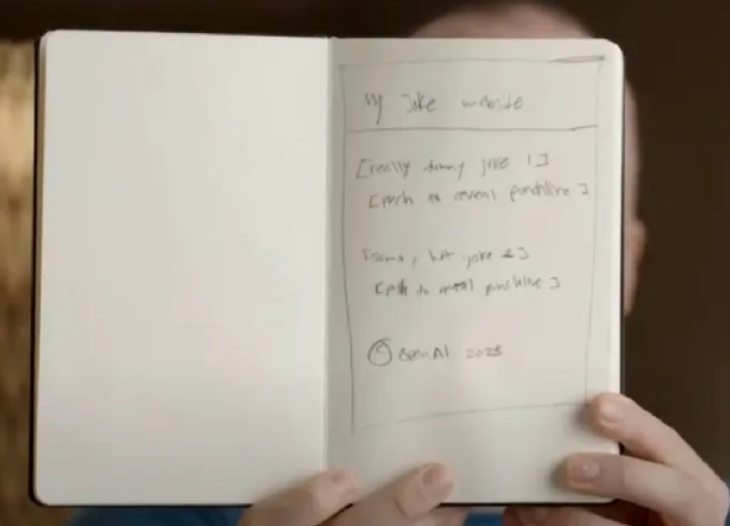 My Joke website
[really funny joke 1]
[push to reveal punchline]
joke 2]
[push to reveal punchline]
© OpenAI 2023